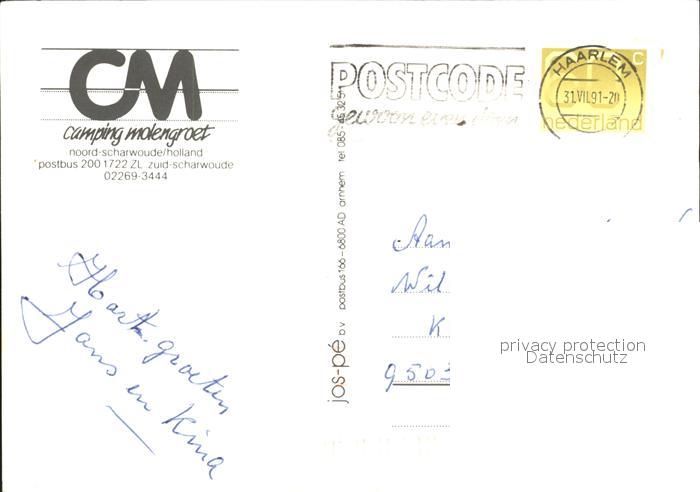 CM
camping molengroet
noord-scharwoude/holland
postbus 200 1722 ZL zuid-scharwoude
02269-3444
Hart. groeten
Hans en Kina
jos-pé b.v. postbus 166 - 6800 AD arnhem tel 085-
POSTCODE
gewoon even
HAARLEM
31.VII.91-20
C
nederland
Aan
Wil
K
9503
privacy protection
Datenschutz